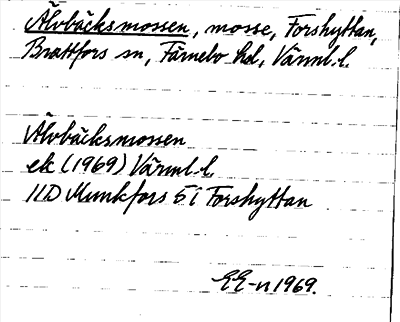 Älvbäcksmossen, mosse, Forshyttan,
Brattfors sn, Färnebo hd, Värml. l.
Älvbäcksmossen
ek (1969) Värml. l.
11D Munkfors 5 i Forshyttan
EE-n 1969.